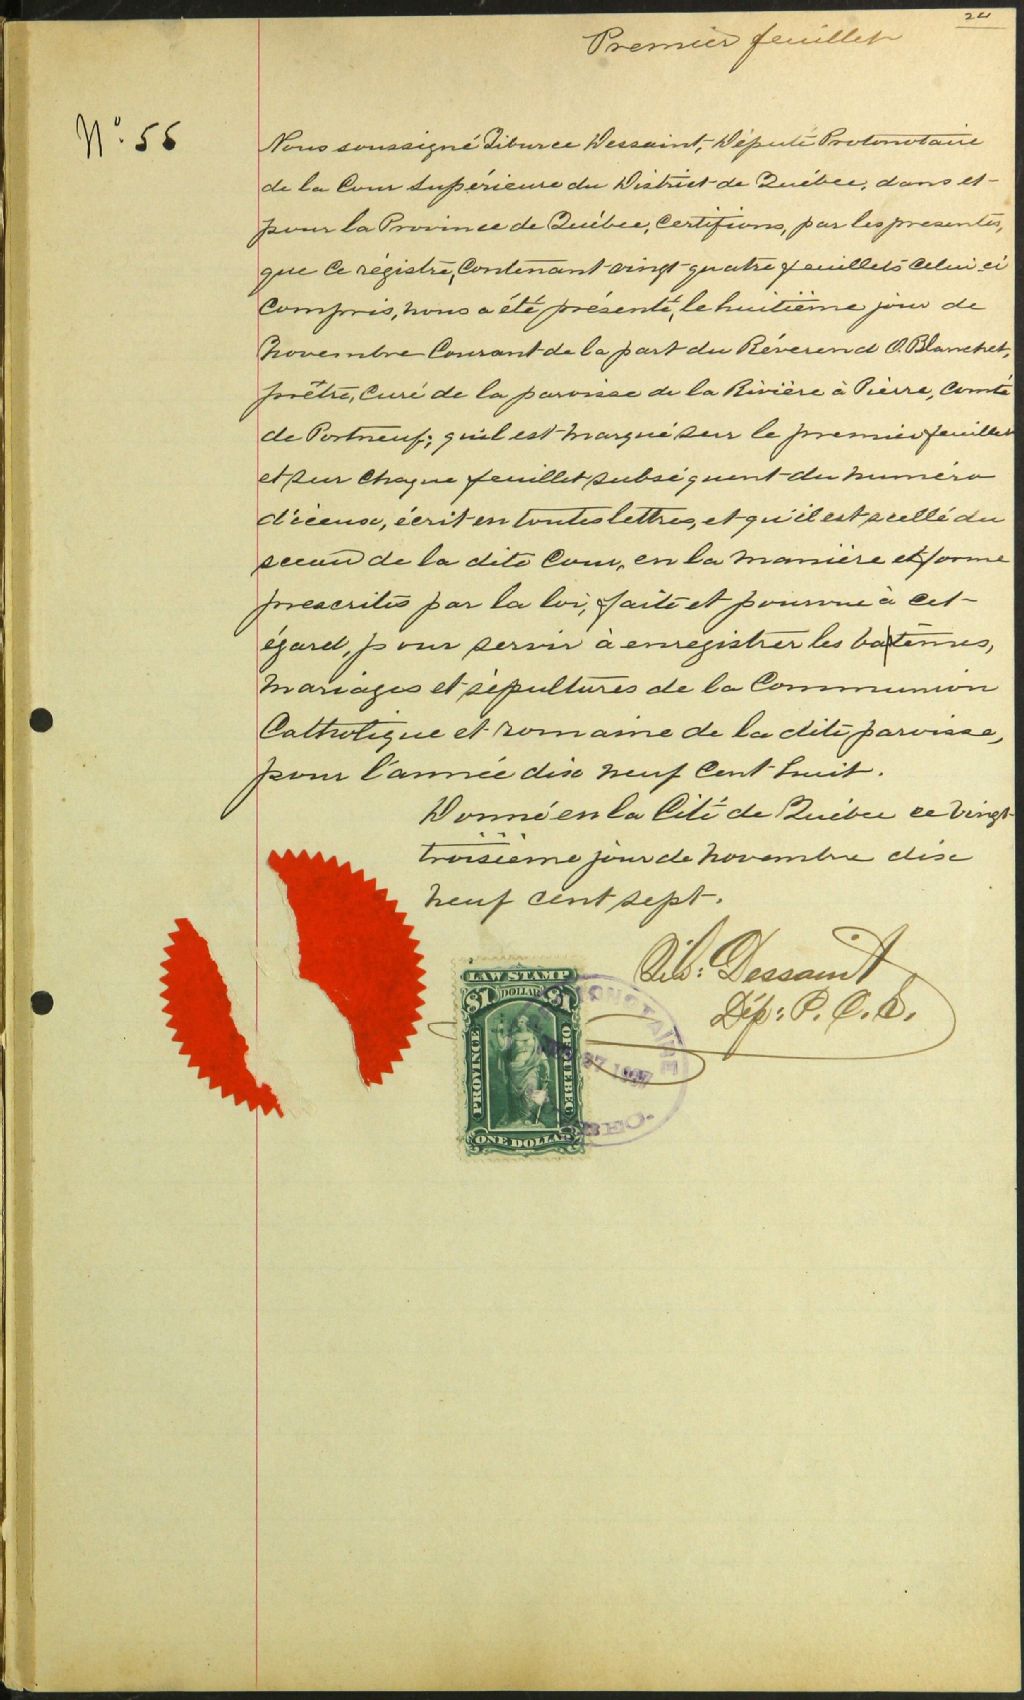 24
Premier feuillet
No. 56
Nous soussigné Tiburce Dessaint, Député Protonotaire
de la Cour Supérieure du District de Québec, dans et
pour la Province de Québec, Certifions, par les présentes,
que ce régistre, Contenant vingt-quatre feuillets celui-ci
Compris, nous a été présenté, le huitième jour de
Novembre Courant de la part du Révérend O. Blanchet,
prêtre, Curé de la paroisse de la Rivière à Pierre, Comté
de Portneuf; qu'il est marqué sur le premier feuillet
et sur chaque feuillet subséquent du numéro
d'icieux, écrit en toutes lettres, et qu'il est scellé du
sceau de la dite Cour, en la manière et forme
prescrites par la loi, faite et pourvue à cet
égard, pour servir à enregistrer les batêmes,
Mariages et sépultures de la Communion
Catholique et romaine de la dite paroisse,
pour l'année dix neuf Cent huit.
Donné en la Cité de Québec ce vingt
troisième jour de Novembre dix
neuf cent sept.
Tib: Dessaint
Dép: P. C. S.
LAW STAMP
$1 DOLLAR $1
PROVINCE OF QUEBEC
ONE DOLLAR
ONOTAIRE
27 1907
BEC.